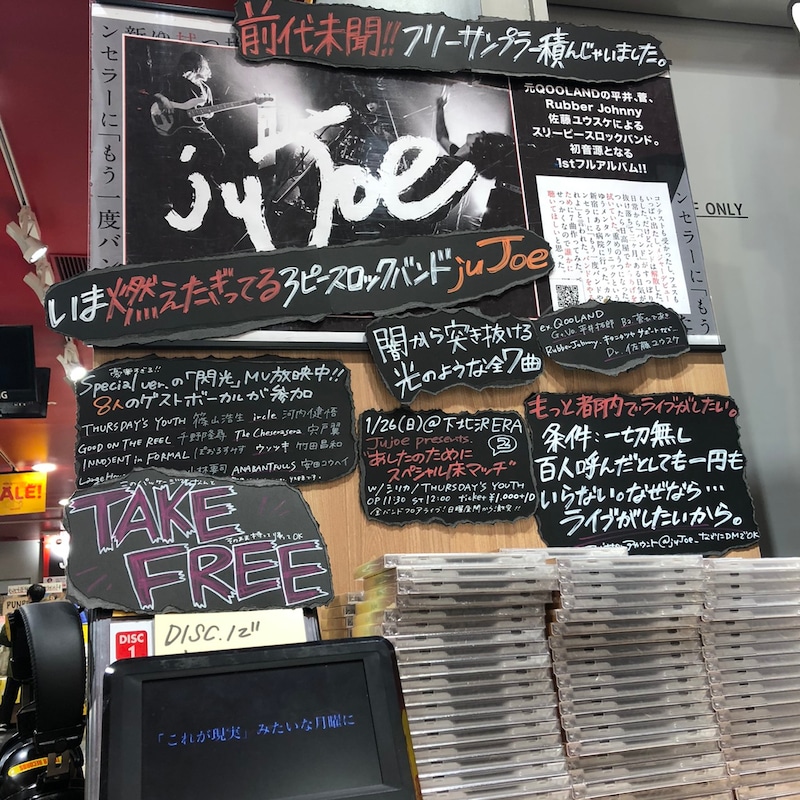 前代未聞!! フリーサンプラー積んじゃいました。
元QOOLANDの平井、菅、
Rubber Johnny
佐藤ユウスケによる
スリーピースロックバンド。
初音源となる
1stフルアルバム!!
ju Joe
ンセラーに「もう一度バン
ンセラーに「もう
F ONLY
いま燃えたぎってる3ピースロックバンド ju Joe
闇から突き抜ける
光のような全7曲
ex.QOOLAND
Dr. 佐藤ユウスケ
Special ver.の「閃光」MV放映中!!
8人のゲストボーカルが参加
THURSDAY'S YOUTH 篠山浩生 ircle 河内健悟
GOOD ON THE REEL 千野隆尋 The Cheserasera 宍戸翼
INNOSENT in FORMAL ぽおるすみす ウソツキ 竹田昌和
ANABANTFULLS 安田コウヘイ
1/26(日)@下北沢ERA
JuJoe presents.
"あしたのために
スペシャル床マッチ"
w/シリカ/THURSDAY'S YOUTH
OP 11:30 ST 12:00 ticket ¥1,000+1D
もっと都内でライブがしたい。
条件:一切無し
百人呼んだとしても一円も
いらない。なぜなら…
ライブがしたいから。
アカウント@juJoe_などにDMでOK
TAKE
FREE
DISC
1
DISC.12"
ALE!
「これが現実」みたいな月曜に